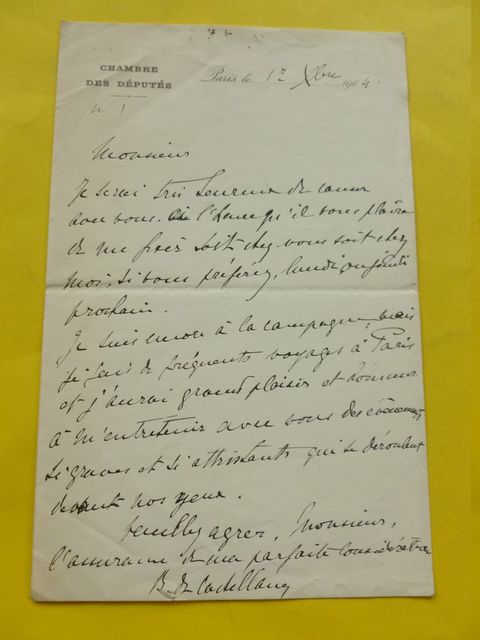 CHAMBRE
DES DÉPUTÉS
Paris le 12 Xbre 1904
Monsieur
Je serai très heureux de causer
avec vous à l'heure qu'il vous plaira
de me fixer soit chez vous soit chez
moi, si vous préférez, lundi ou jeudi
prochain.
Je suis encore à la campagne, mais
je fais de fréquents voyages à Paris
et j'aurai grand plaisir et honneur
à m'entretenir avec vous des événements
si graves et si attristants qui se déroulent
devant nos yeux.
Veuillez agréer, Monsieur,
l'assurance de ma parfaite considération
B. de Castellane